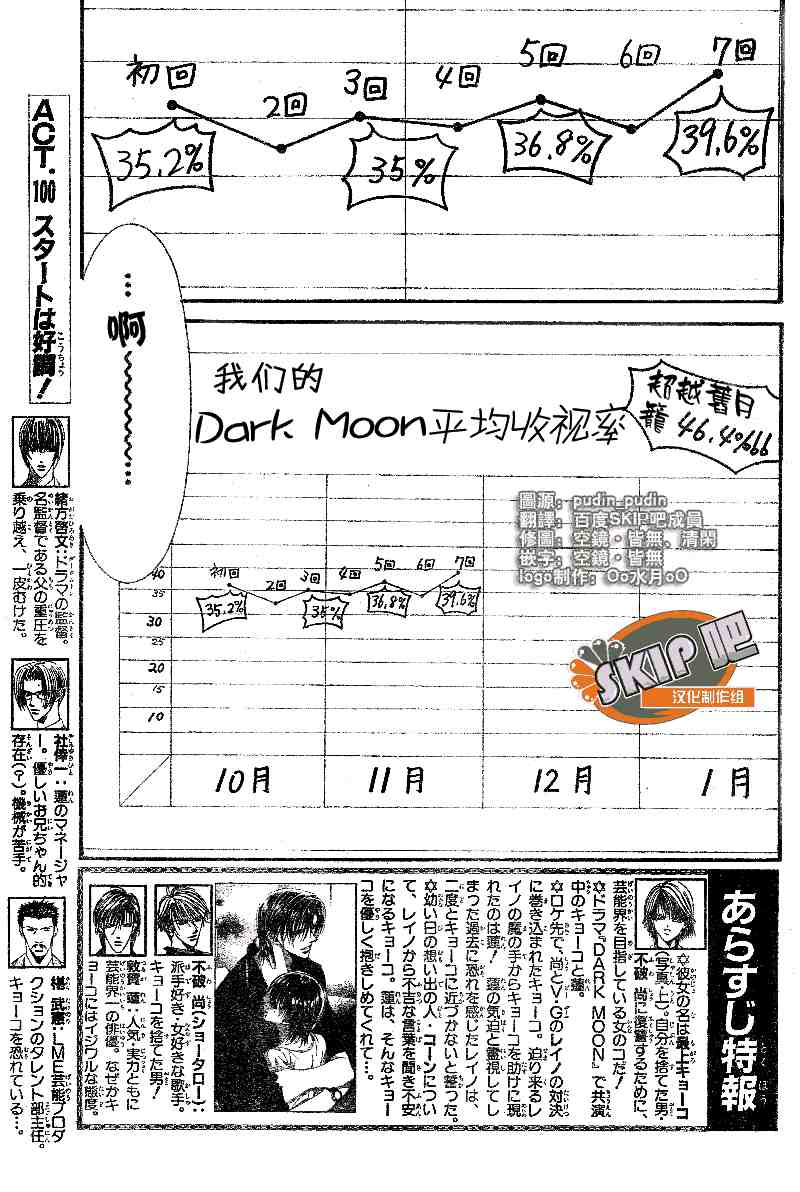 初回
2回
3回
4回
5回
6回
7回
35.2%
35%
36.8%
39.6%
ACT.100 スタートは好調!
こうちょう
…啊~~~~~~…
我们的
Dark Moon平均收视率
超越舊月
籠 46.4%
圖源:pudin_pudin
翻譯:百度SKIP吧成員
修圖:空鏡·皆無、清閑
嵌字:空鏡·皆無
logo制作:Oo水月oO
SKIP吧
汉化制作组
40
35
30
25
20
15
10
初回
2回
3回
4回
5回
6回
7回
35.2%
35%
36.8%
39.6%
10月
11月
12月
1月
緒方啓文:ドラマの監督。
名監督である父の重圧を
乗り越え、一皮むけた。
社倖一:蓮のマネージャ
ー。優しいお兄ちゃん的
存在(?)。機械が苦手。
椹 武憲:LME芸能プロダ
クションのタレント部主任。
キョーコを恐れている…。
あらすじ特報
とくほう
✡彼女の名は最上キョーコ
(写真・上)。自分を捨てた男・
不破 尚に復讐するために、
芸能界を目指している女のコだ!
✡ドラマ『DARK MOON』で共演
中のキョーコと蓮。
✡ロケ先で、尚とV・Gのレイノの対決
に巻き込まれたキョーコ。迫り来るレ
イノの魔の手からキョーコを助けに現
れたのは蓮! 蓮の気迫と霊視してし
まった過去に恐れを感じたレイノは、
二度とキョーコに近づかないと誓った。
✡幼い日の想い出の人・コーンについ
て、レイノから不吉な言葉を聞き不安
になるキョーコ。蓮は、そんなキョー
コを優しく抱きしめてくれて…。
不破 尚(ショータロー):
派手好き・女好きな歌手。
キョーコを捨てた男!
敦賀 蓮:人気・実力ともに
芸能界一の俳優。なぜかキ
ョーコにはイジワルな態度。